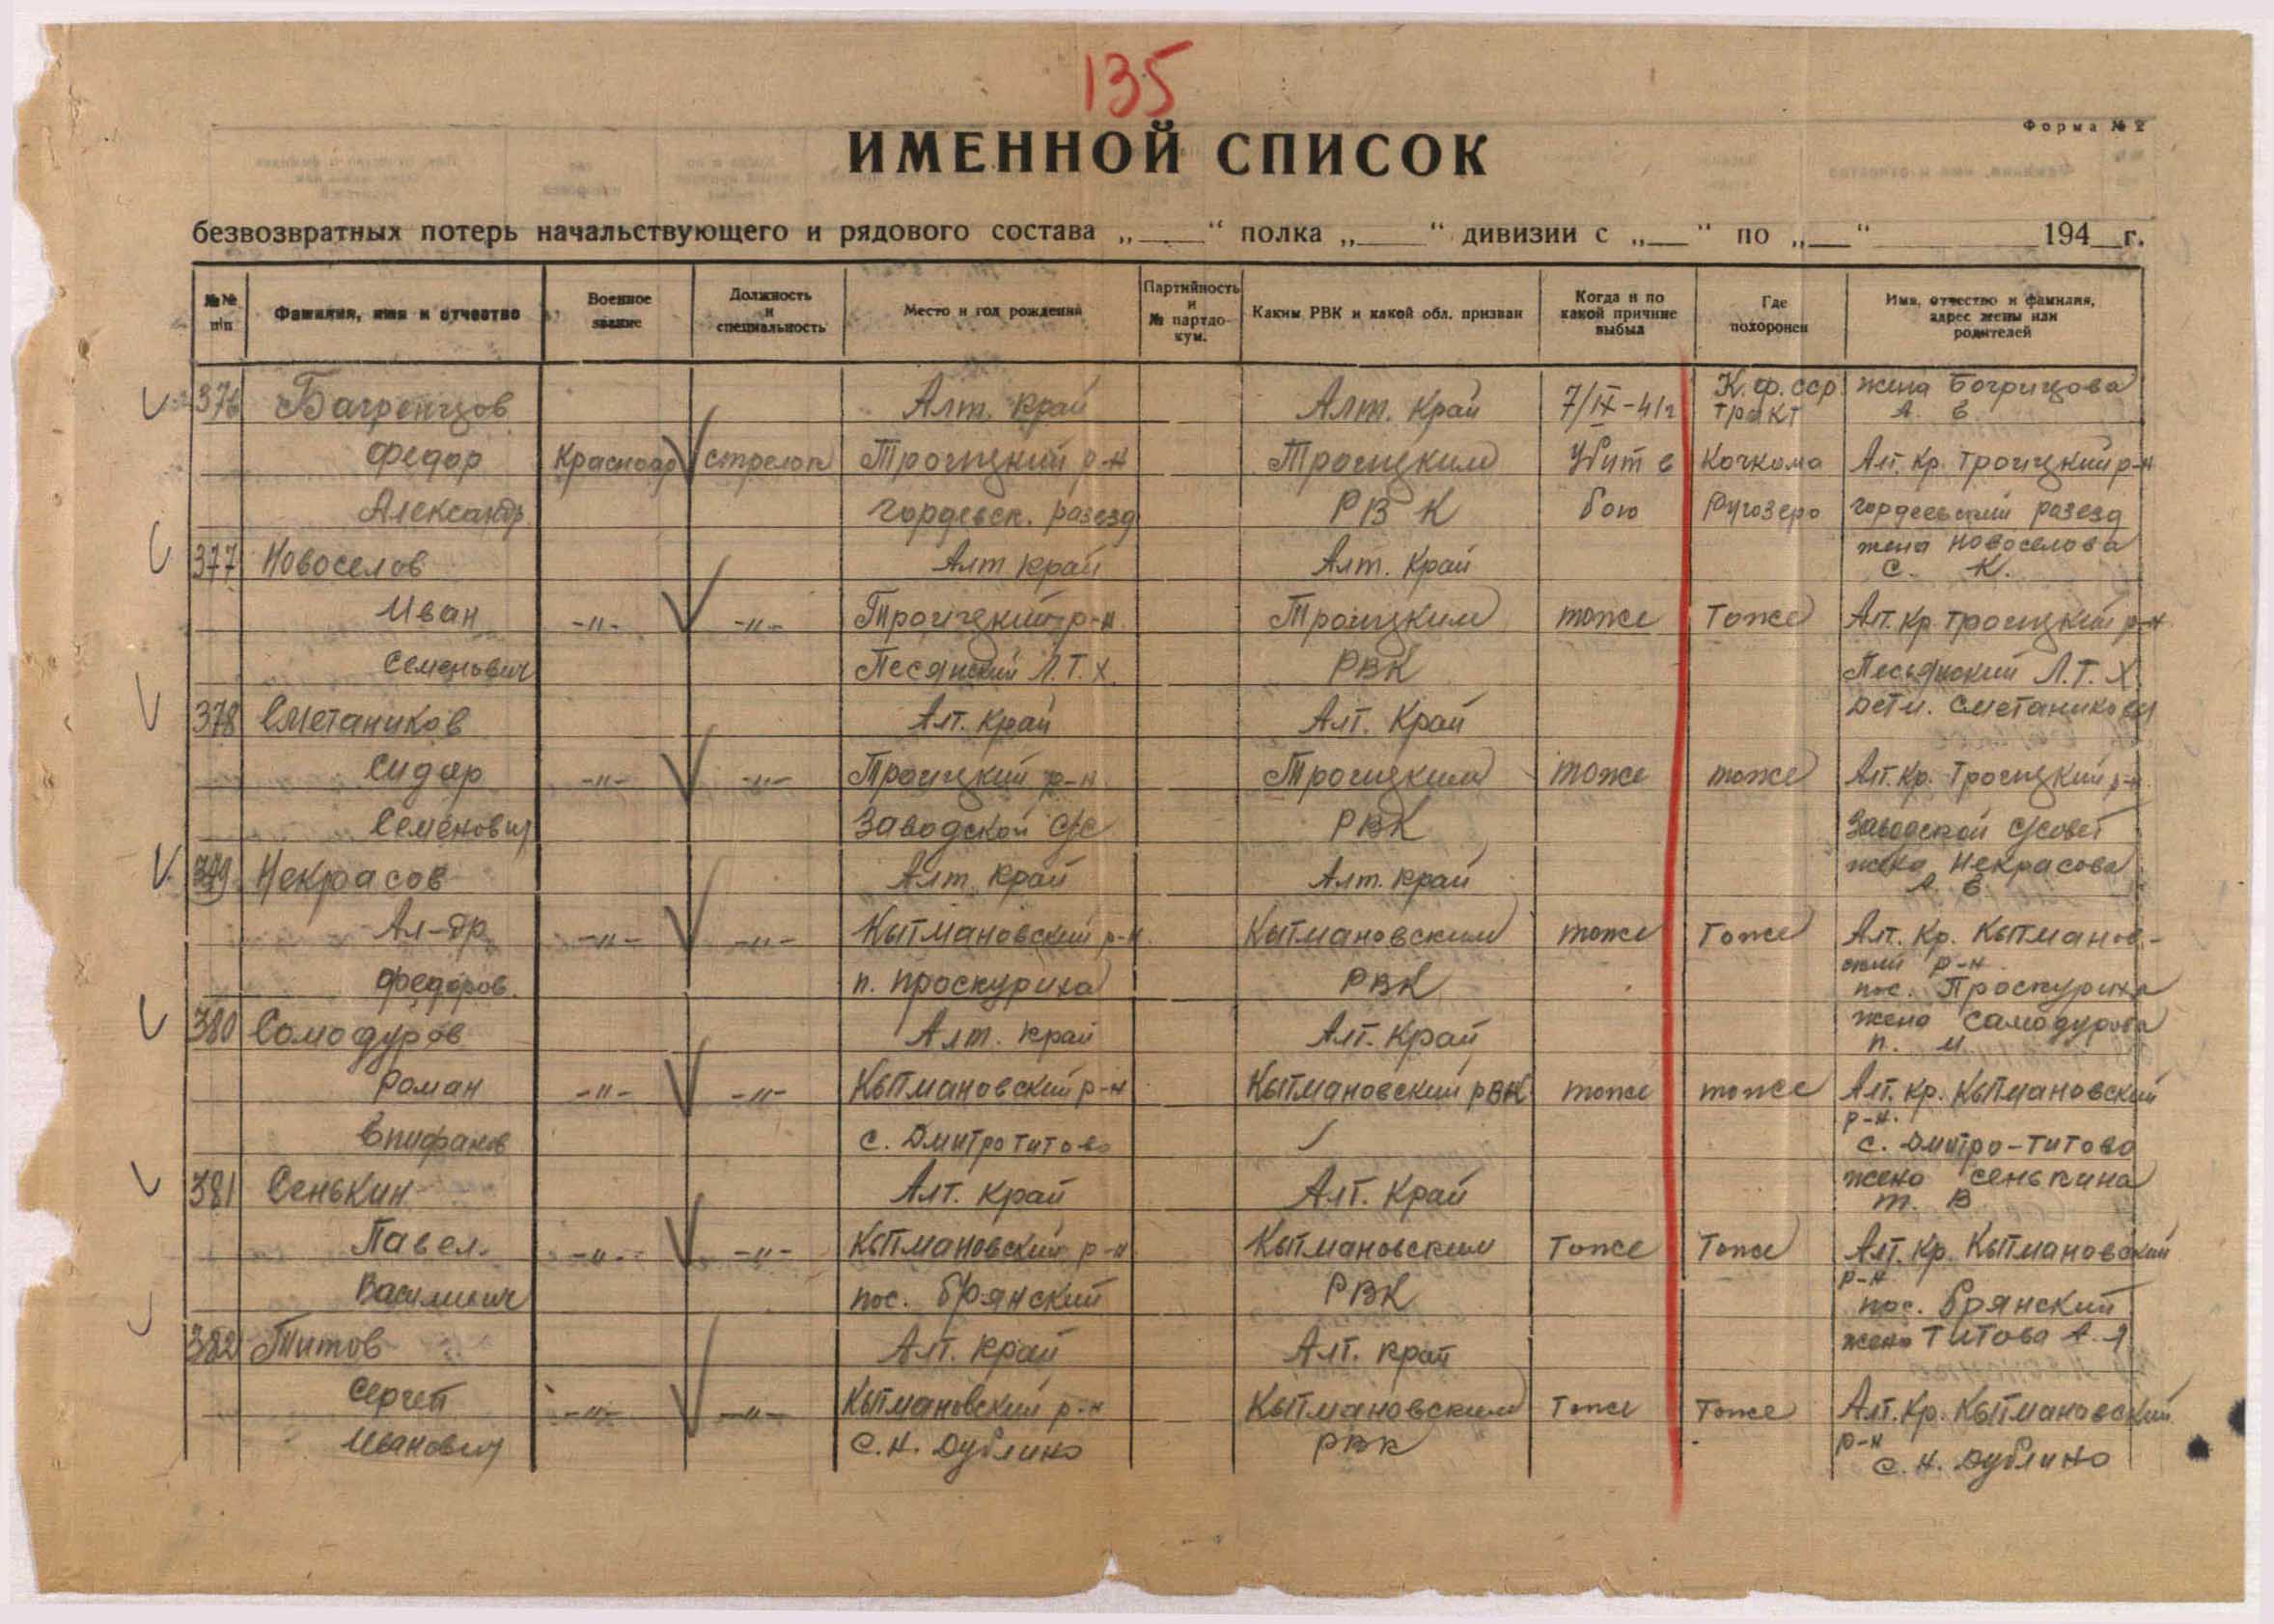 135
Форма № 2
ИМЕННОЙ СПИСОК
безвозвратных потерь начальствующего и рядового состава „____“ полка „____“ дивизии с „___“ по „___“ ________ 194__г.
№№ п/п | Фамилия, имя и отчество | Военное звание | Должность и специальность | Место и год рождения | Партийность и № партдокум. | Каким РВК и какой обл. призван | Когда и по какой причине выбыл | Где похоронен | Имя, отчество и фамилия, адрес жены или родителей
376 Багренцов Алт. край Алт. край 7/IX-41г К.Ф.ССР тракт жена Богрицова А. Е.
Федор Красноар стрелок Троицкий р-н Троицким Убит в Кочкома Алт. Кр. Троицкий р-н
Александр. гордеевск. разезд РВК бою Ругозеро гордеевский разезд
377 Новоселов Алт край Алт. Край жена Новоселова С. К.
Иван -"- -"- Троицкий р-н Троицким тоже Тоже Алт. Кр. Троицкий р-н
Семенович Песянский Л.Т.Х. РВК Песьянский Л.Т.Х.
378 Сметаников Алт. край Алт. Край дети. Сметаниковы
Сидор -"- -"- Троицкий р-н Троицким тоже тоже Алт. Кр. Троицкий р-н
Семенович Заводской с/с РВК Заводской с/совет
379 Некрасов Алт. край Алт. край жена Некрасова А. Е.
Ал-др -"- -"- Кытмановский р-н Кытмановским тоже Тоже Алт. Кр. Кытманов-
ский р-н
Федоров. п. проскуриха РВК пос. Проскуриха
380 Самодуров Алт. край Алт. Край жена Самодурова П. М.
Роман -"- -"- Кытмановский р-н Кытмановский РВК тоже тоже Алт. кр. Кытмановский
р-н.
Епифанов с. Дмитро титово с. Дмитро-титово
381 Сенькин Алт. край Алт. Край жена Сенькина Т. В
Павел. -"- -"- Кытмановский р-н Кытмановским Тоже Тоже Алт. Кр. Кытмановский
р-н
Васильевич пос. Брянский РВК пос. Брянский
382 Титов Алт. край Алт. край жена Титова А. Я
Сергей -"- -"- Кытмановский р-н Кытмановским Тоже Тоже Алт. Кр. Кытмановский
р-н
Иванович С.Н. Дублино РВК С. Н. Дублино